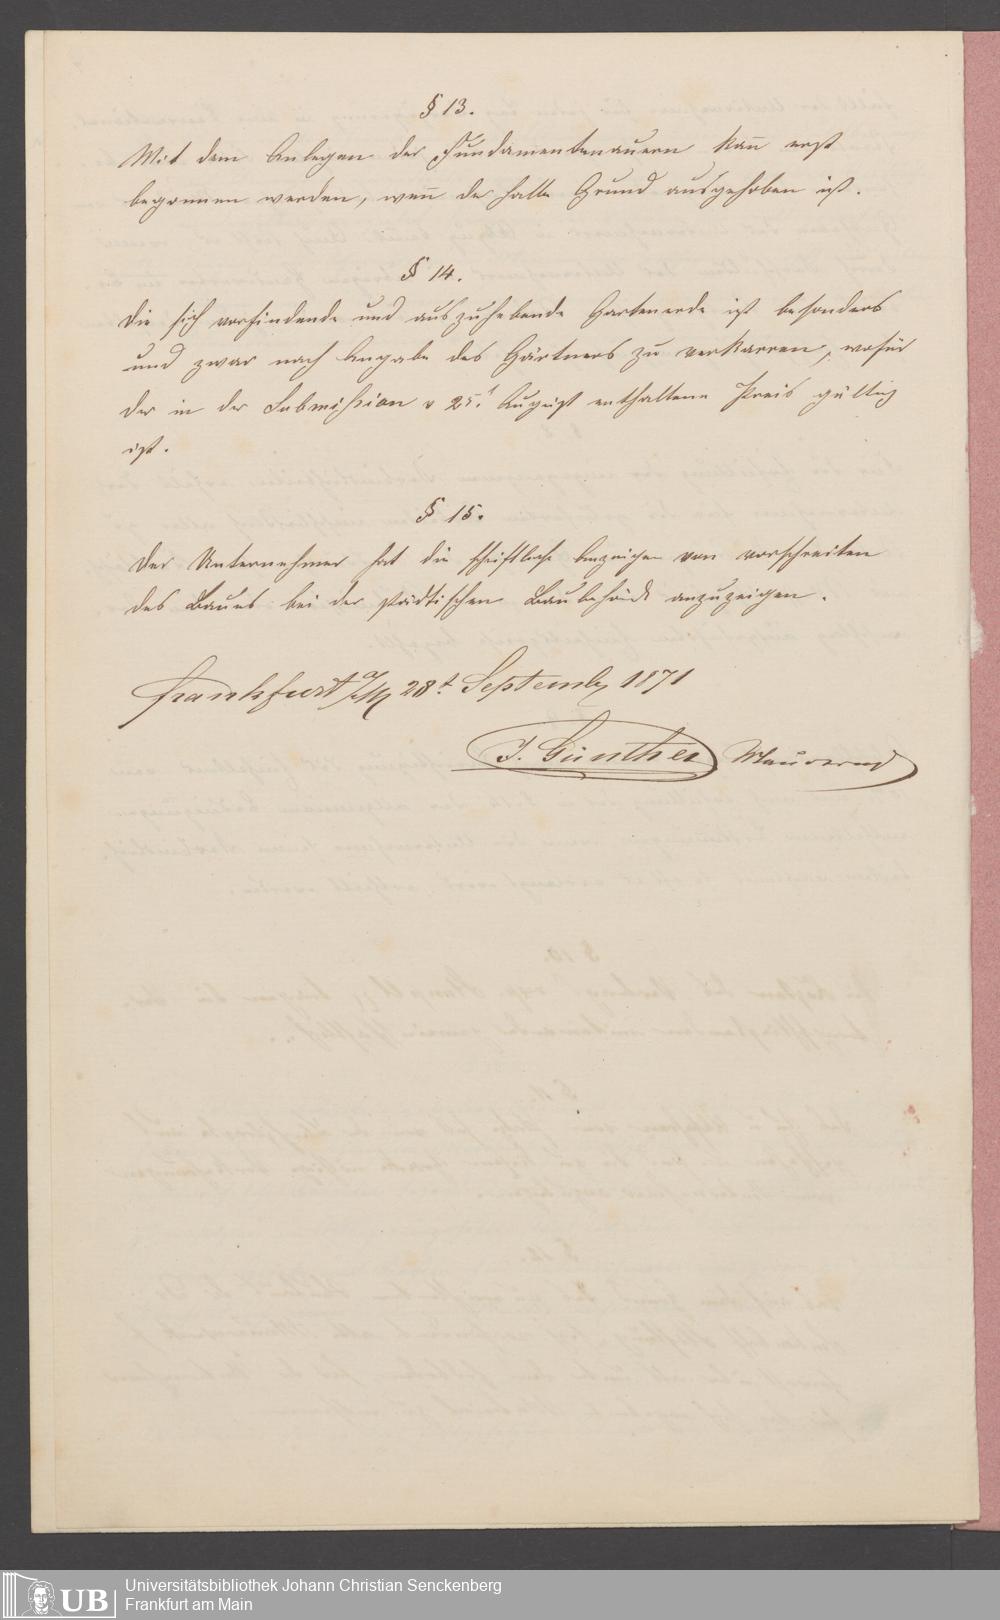 § 13.
Mit dem Anlegen der Fundamentenauern kan̄ erst
begonnen werden, wen̄ der halbe Grund ausgehoben ist.
§ 14.
Die sich vorfindende und auszuhebende Gartenerde ist besonders
und zwar nach Angabe des Gärtners zu verkarren, wofür
der in der Submission v 25t August enthaltene Preis gültig
ist.
§ 15.
Der Unternehmer hat die schriftliche Anzeigen von vorschreiten
des Baues bei der städtischen Baubehörde anzuzeigen.
Frankfurt a/M 28t September 1871
J. Günther
Universitätsbibliothek Johann Christian Senckenberg
Frankfurt am Main
UB